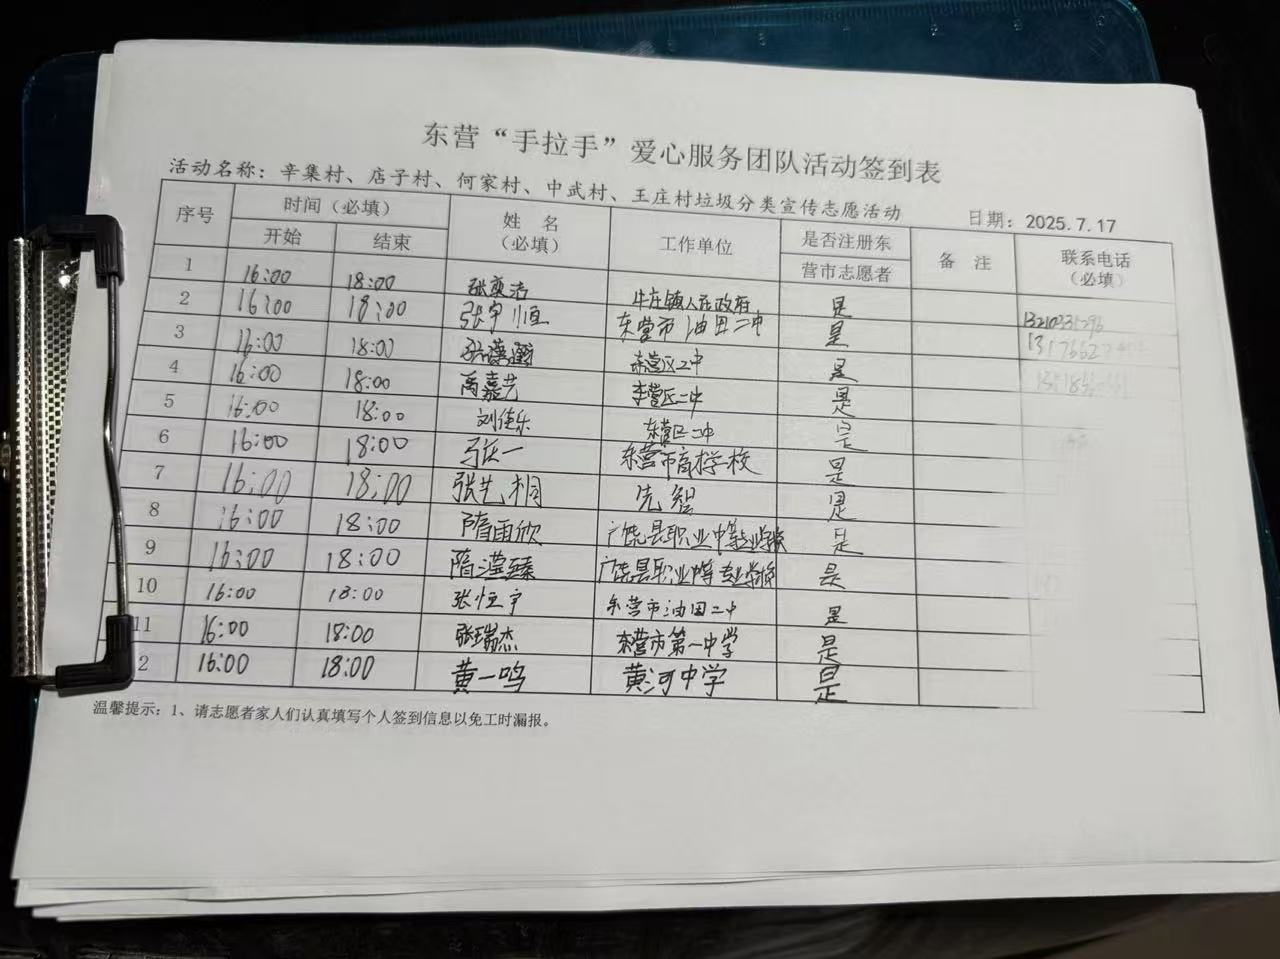 东营“手拉手”爱心服务团队活动签到表
活动名称：辛集村、店子村、何家村、中武村、王庄村垃圾分类宣传志愿活动 日期：2025.7.17
序号 时间（必填） 姓 名（必填） 工作单位 是否注册东营市志愿者 备 注 联系电话（必填）
开始 结束
1 16:00 18:00 牛庄镇人民政府 是
2 16:00 18:00 张宇恒 东营市油田二中 是
3 16:00 18:00 东营区二中 是
4 16:00 18:00 禹嘉艺 李营区二中 是
5 16:00 18:00 刘佳乐 东营区二中 是
6 16:00 18:00 东营市商校学校 是
7 16:00 18:00 张艺桐 先智 是
8 16:00 18:00 隋雨欣 广饶县职业中等专业学校 是
9 16:00 18:00 隋滢臻 广饶县职业中等专业学校 是
10 16:00 18:00 张恒宇 东营市油田二中 是
11 16:00 18:00 张瑞杰 东营市第一中学 是
2 16:00 18:00 黄一鸣 黄河中学 是
温馨提示：1、请志愿者家人们认真填写个人签到信息以免工时漏报。